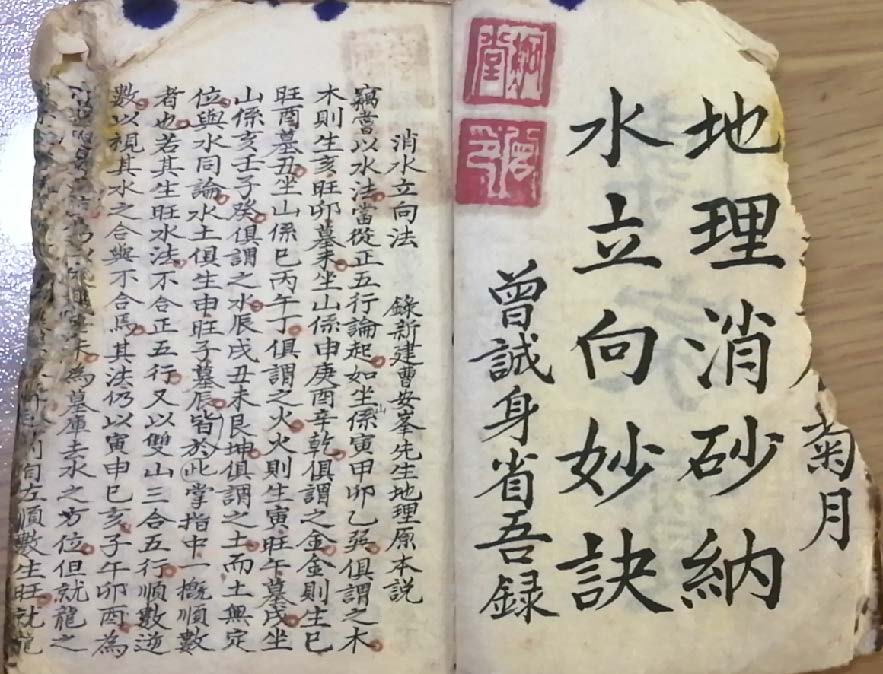 菊月
地理消砂納
水立向妙訣
曾誠身省吾錄
消水立向法 錄新建曹安峯先生地理原本說
竊嘗以水法當從正五行論起如坐係寅甲卯乙巽俱謂之木
木則生亥旺卯墓未坐山係申庚酉辛乾俱謂之金金則生巳
旺酉墓丑坐山係巳丙午丁俱謂之火火則生寅旺午墓戌坐
山係亥壬子癸俱謂之水辰戌丑未艮坤俱謂之土而土無定
位與水同論水土俱生申旺子墓辰皆於此掌指中一概順數
者也若其生旺水法不合正五行又以雙山三合五行順數逆
數以視其水之合與不合焉其法仍以寅申巳亥子午卯酉為
未為墓庫去水之方位但就龍之
左順數生旺就龍